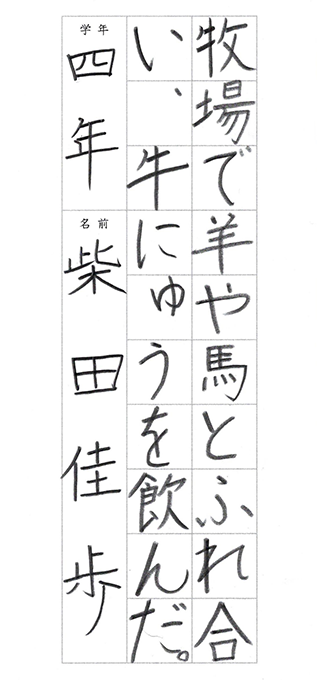 牧場で羊や馬とふれ合
い、牛にゅうを飲んだ。
学年
四年
名前
柴田佳歩